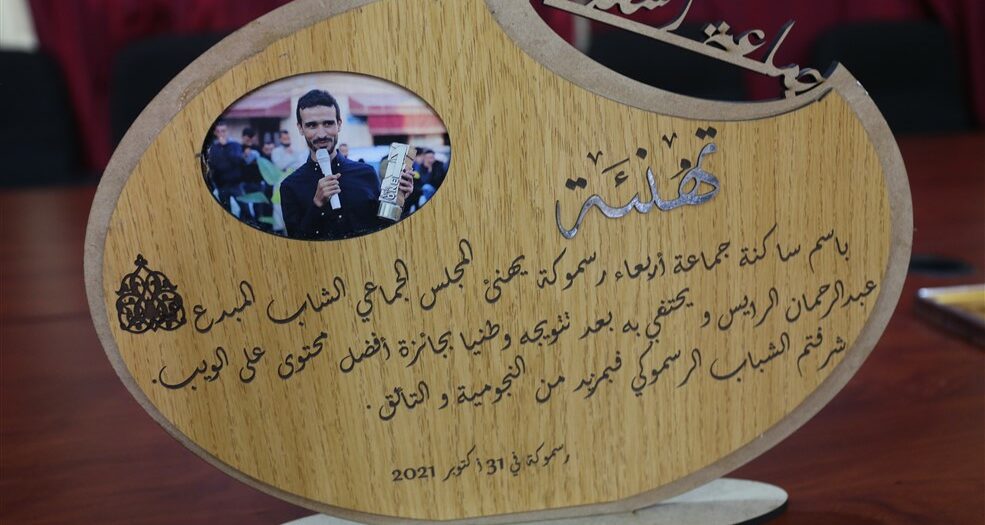 تهنئة
باسم ساكنة جماعة أربعاء رسموكة يهنئ المجلس الجماعي الشاب المبدع
عبدالرحمان الرايس و يحتفي به بعد تتويجه وطنيا بجائزة أفضل محتوى على الويب.
شرفتم الشباب الرسموكي فبمزيد من النجومية و التألق.
رسموكة في 31 أكتوبر 2021